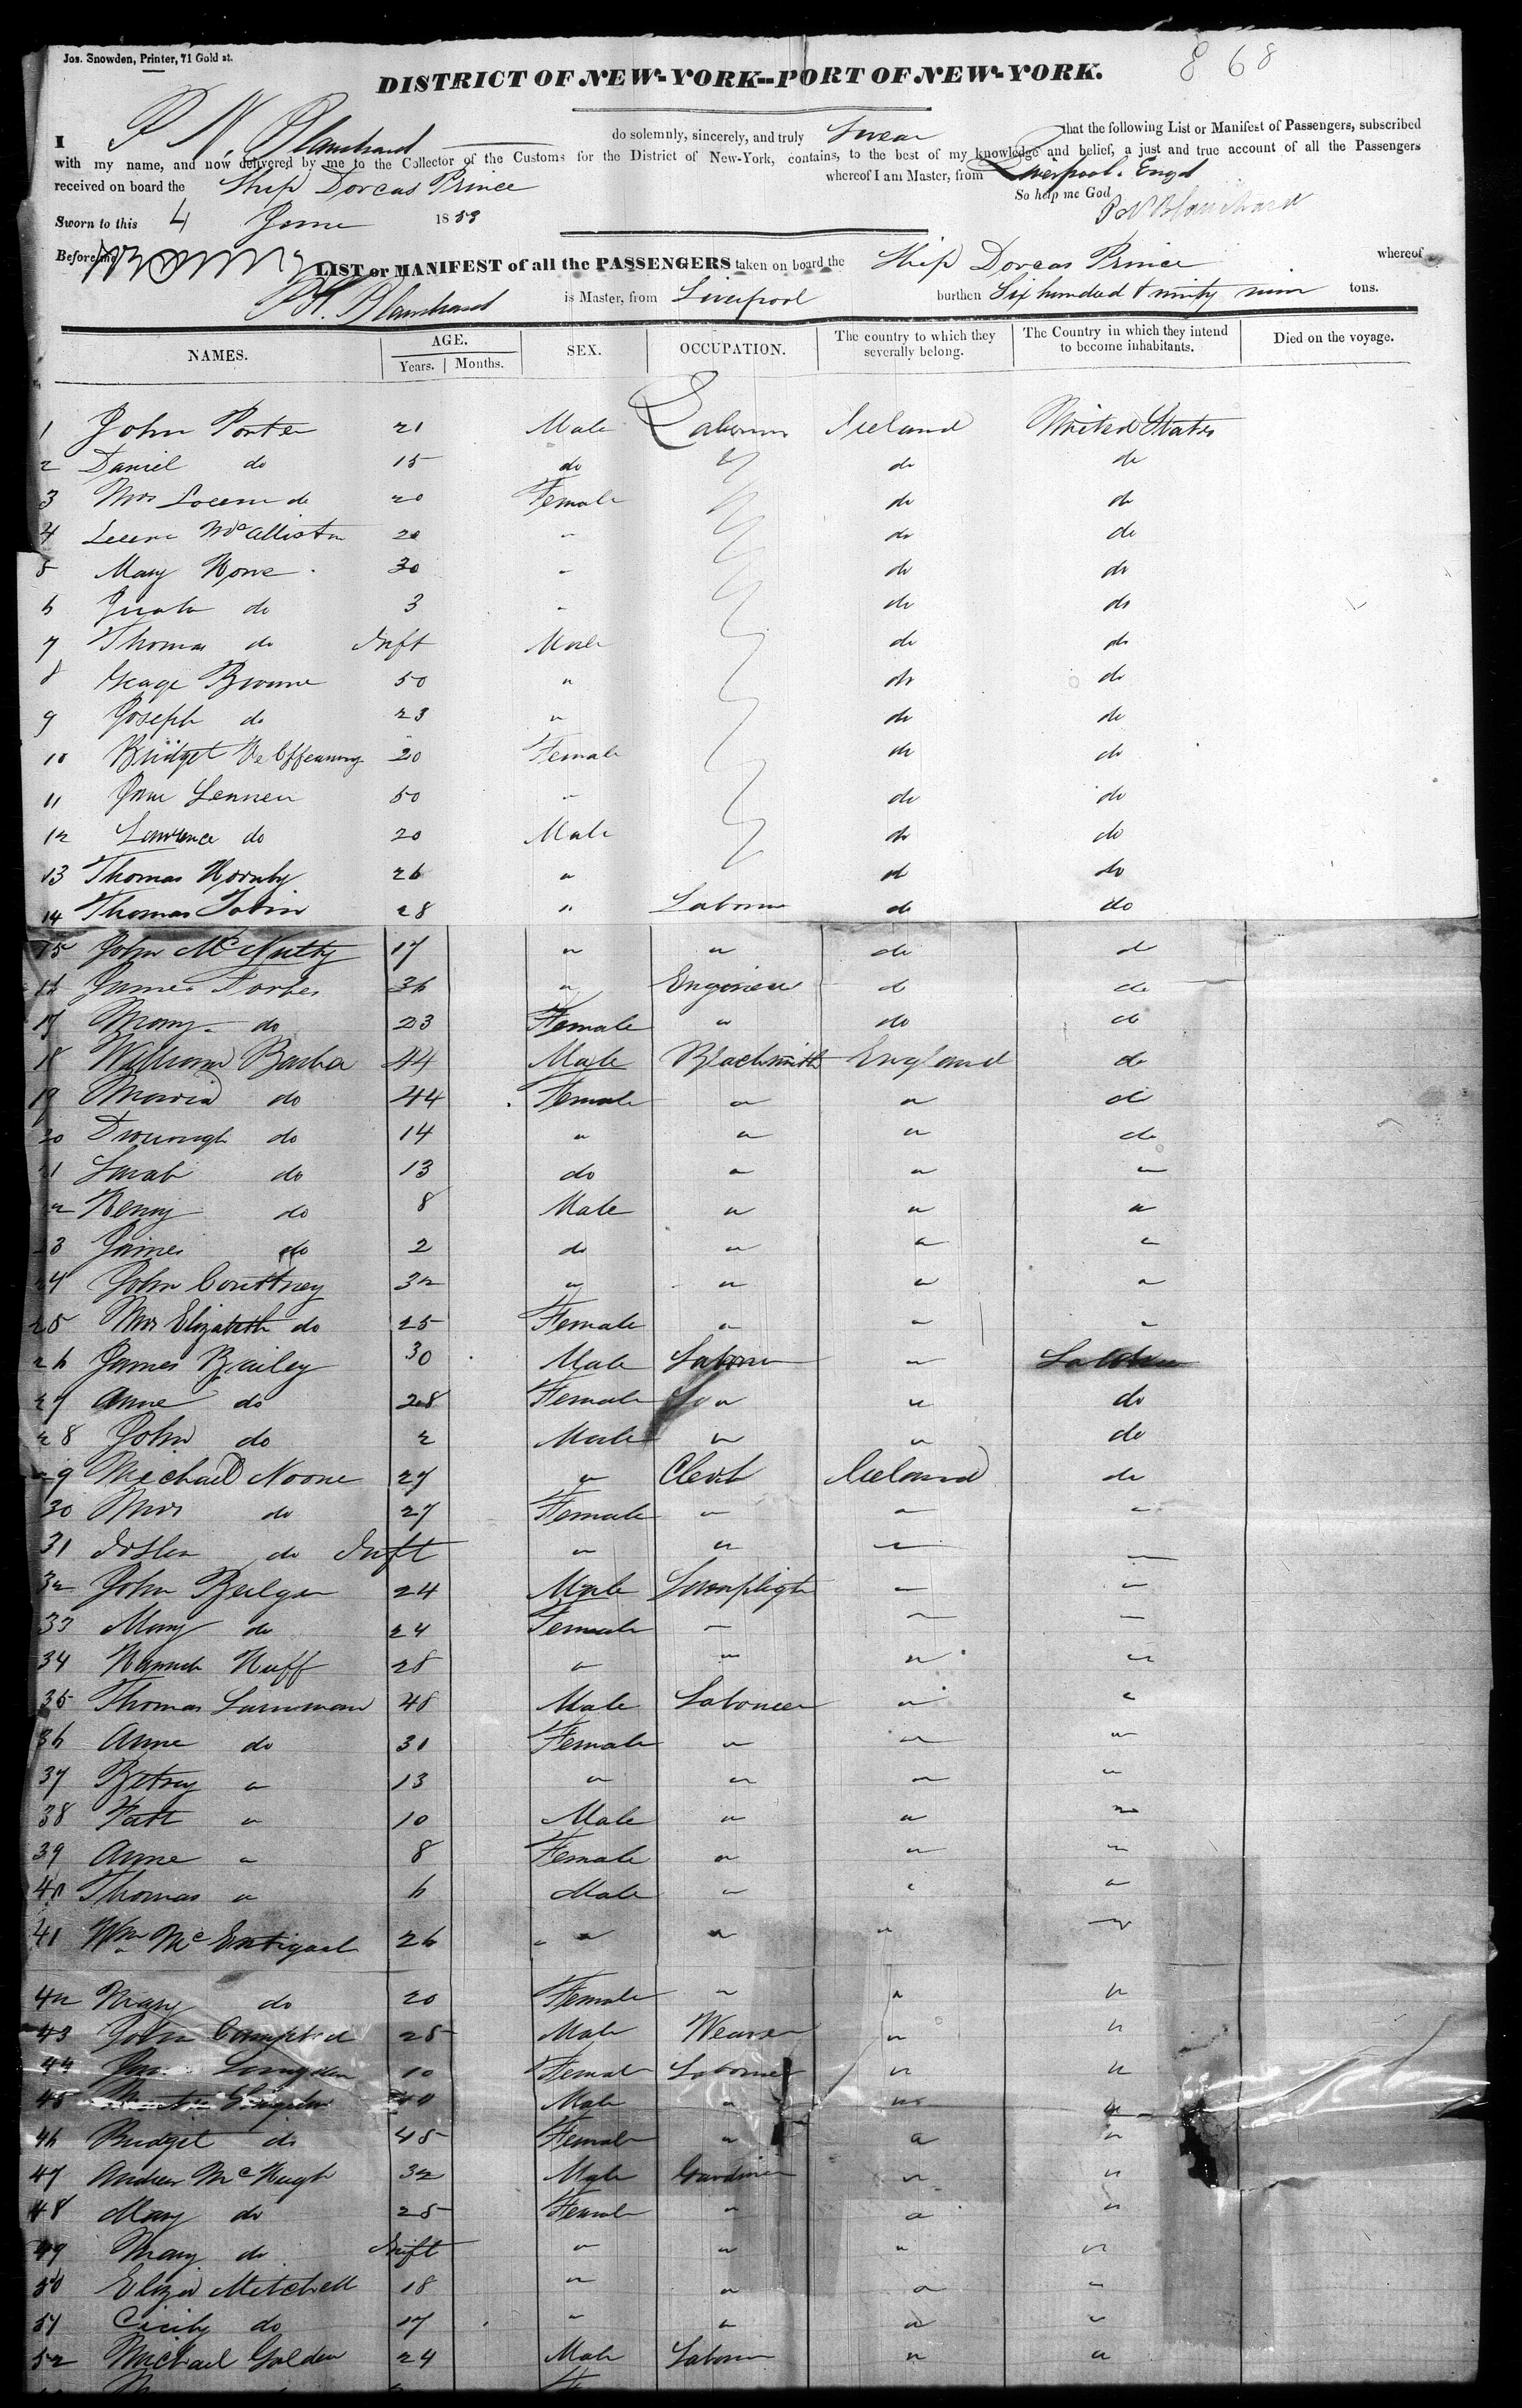 Jos. Snowden, Printer, 71 Gold st.
8 68
DISTRICT OF NEW-YORK--PORT OF NEW-YORK.
I P N. Blanchard do solemnly, sincerely, and truly Swear that the following List or Manifest of Passengers, subscribed
with my name, and now delivered by me to the Collector of the Customs for the District of New-York, contains, to the best of my knowledge and belief, a just and true account of all the Passengers
received on board the Ship Dorcas Prince whereof I am Master, from Liverpool. Engd
So help me God
Sworn to this 4 June 1853 P N Blanchard
Before me
LIST or MANIFEST of all the PASSENGERS taken on board the Ship Dorcas Prince whereof
P N. Blanchard is Master, from Liverpool burthen Six hundred & ninty nine tons.
NAMES. AGE. Years. Months. SEX. OCCUPATION. The country to which they severally belong. The Country in which they intend to become inhabitants. Died on the voyage.
1 John Porter 21 Male Laborer Ireland United States
2 Daniel do 15 do " do do
3 Mrs do 20 Female do do
4 McAllister 20 " do do
5 Mary 30 " do do
6 do 3 " do do
7 Thomas do Inft Male do do
8 George Browne 50 " do do
9 Joseph do 23 " do do
10 Bridget 20 Female do do
11 Jane Lennen 50 " do do
12 Lawrence do 20 Male do do
13 Thomas Hornby 26 " do do
14 Thomas Tobin 28 " Laborer do do
15 John McNulty 17 " " do do
16 James Forbes 36 " Engineer do do
17 Mary do 23 Female " do do
18 William Barber 44 Male Blacksmith England do
19 Maria do 44 Female " " do
20 do 14 " " " do
21 Sarah do 13 do " " "
22 Henry do 8 Male " " "
23 James do 2 do " " "
24 John Courtney 32 " " " "
25 Mrs Elizabeth do 25 Female " " "
26 James Bailey 30 Male Laborer "
27 Anne do 28 Female " " do
28 John do 2 Male " " do
29 Michael Noone 27 " Clerk Ireland do
30 Mrs do 27 Female " " "
31 do Inft " " " "
32 John Belger 24 Male " "
33 Mary do 24 Female " " "
34 Hannah Huff 28 " " " "
35 Thomas 48 Male Laborer " "
36 Anne do 31 Female " " "
37 Betsey " 13 " " " "
38 Patt " 10 Male " " "
39 Anne " 8 Female " " "
40 Thomas " 6 Male " " "
41 Wm Mc 26 " " " "
42 Mary do 20 Female " " "
43 John Campbell 25 Male Weaver " "
44 10 Female Laborer " "
45 Male " " "
46 Bridget do 45 Female " " "
47 Andrew McHugh 32 Male Gardiner " "
48 Mary do 25 Female " " "
49 Mary do Inft " " " "
50 Eliza Mitchell 18 " " " "
51 Cicily do 17 " " " "
52 Michael Golden 24 Male Laborer " "